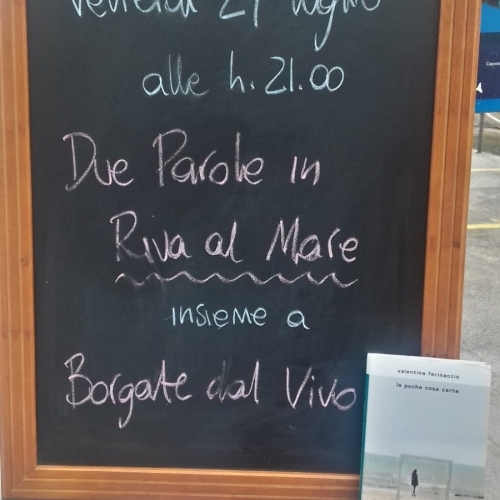 Venerdì 27 luglio
alle h. 21.00
Due Parole in
Riva al Mare
insieme a
Borgate dal Vivo
valentina farinaccio
le poche cose certe